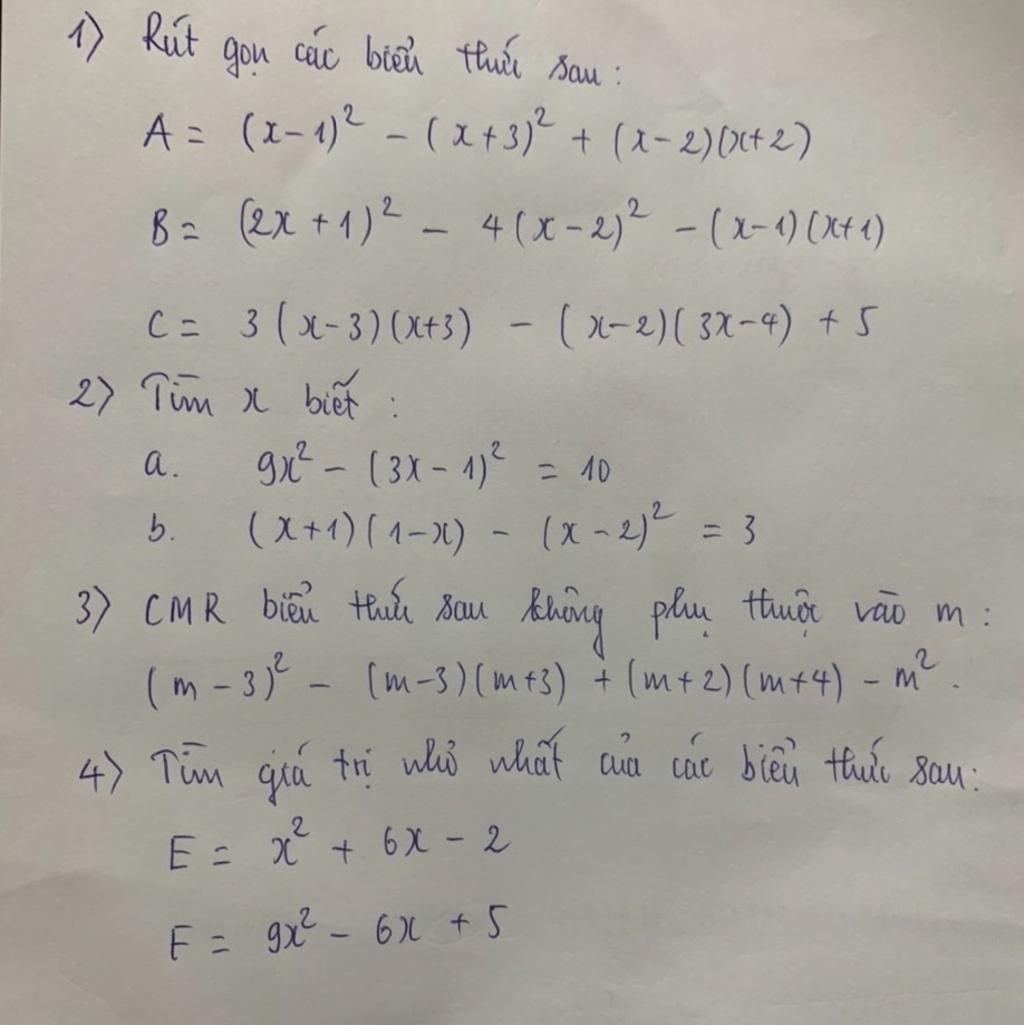 1) Rút gọn các biểu thức sau:
A = (x-1)² - (x+3)² + (x-2)(x+2)
B = (2x+1)² - 4(x-2)² - (x-1)(x+1)
C = 3(x-3)(x+3) - (x-2)(3x-4) + 5
2) Tìm x biết :
a. 9x² - (3x-1)² = 10
b. (x+1)(1-x) - (x-2)² = 3
3) CMR biểu thức sau không phụ thuộc vào m :
(m-3)² - (m-3)(m+3) + (m+2)(m+4) - m².
4) Tìm giá trị nhỏ nhất của các biểu thức sau:
E = x² + 6x - 2
F = 9x² - 6x + 5